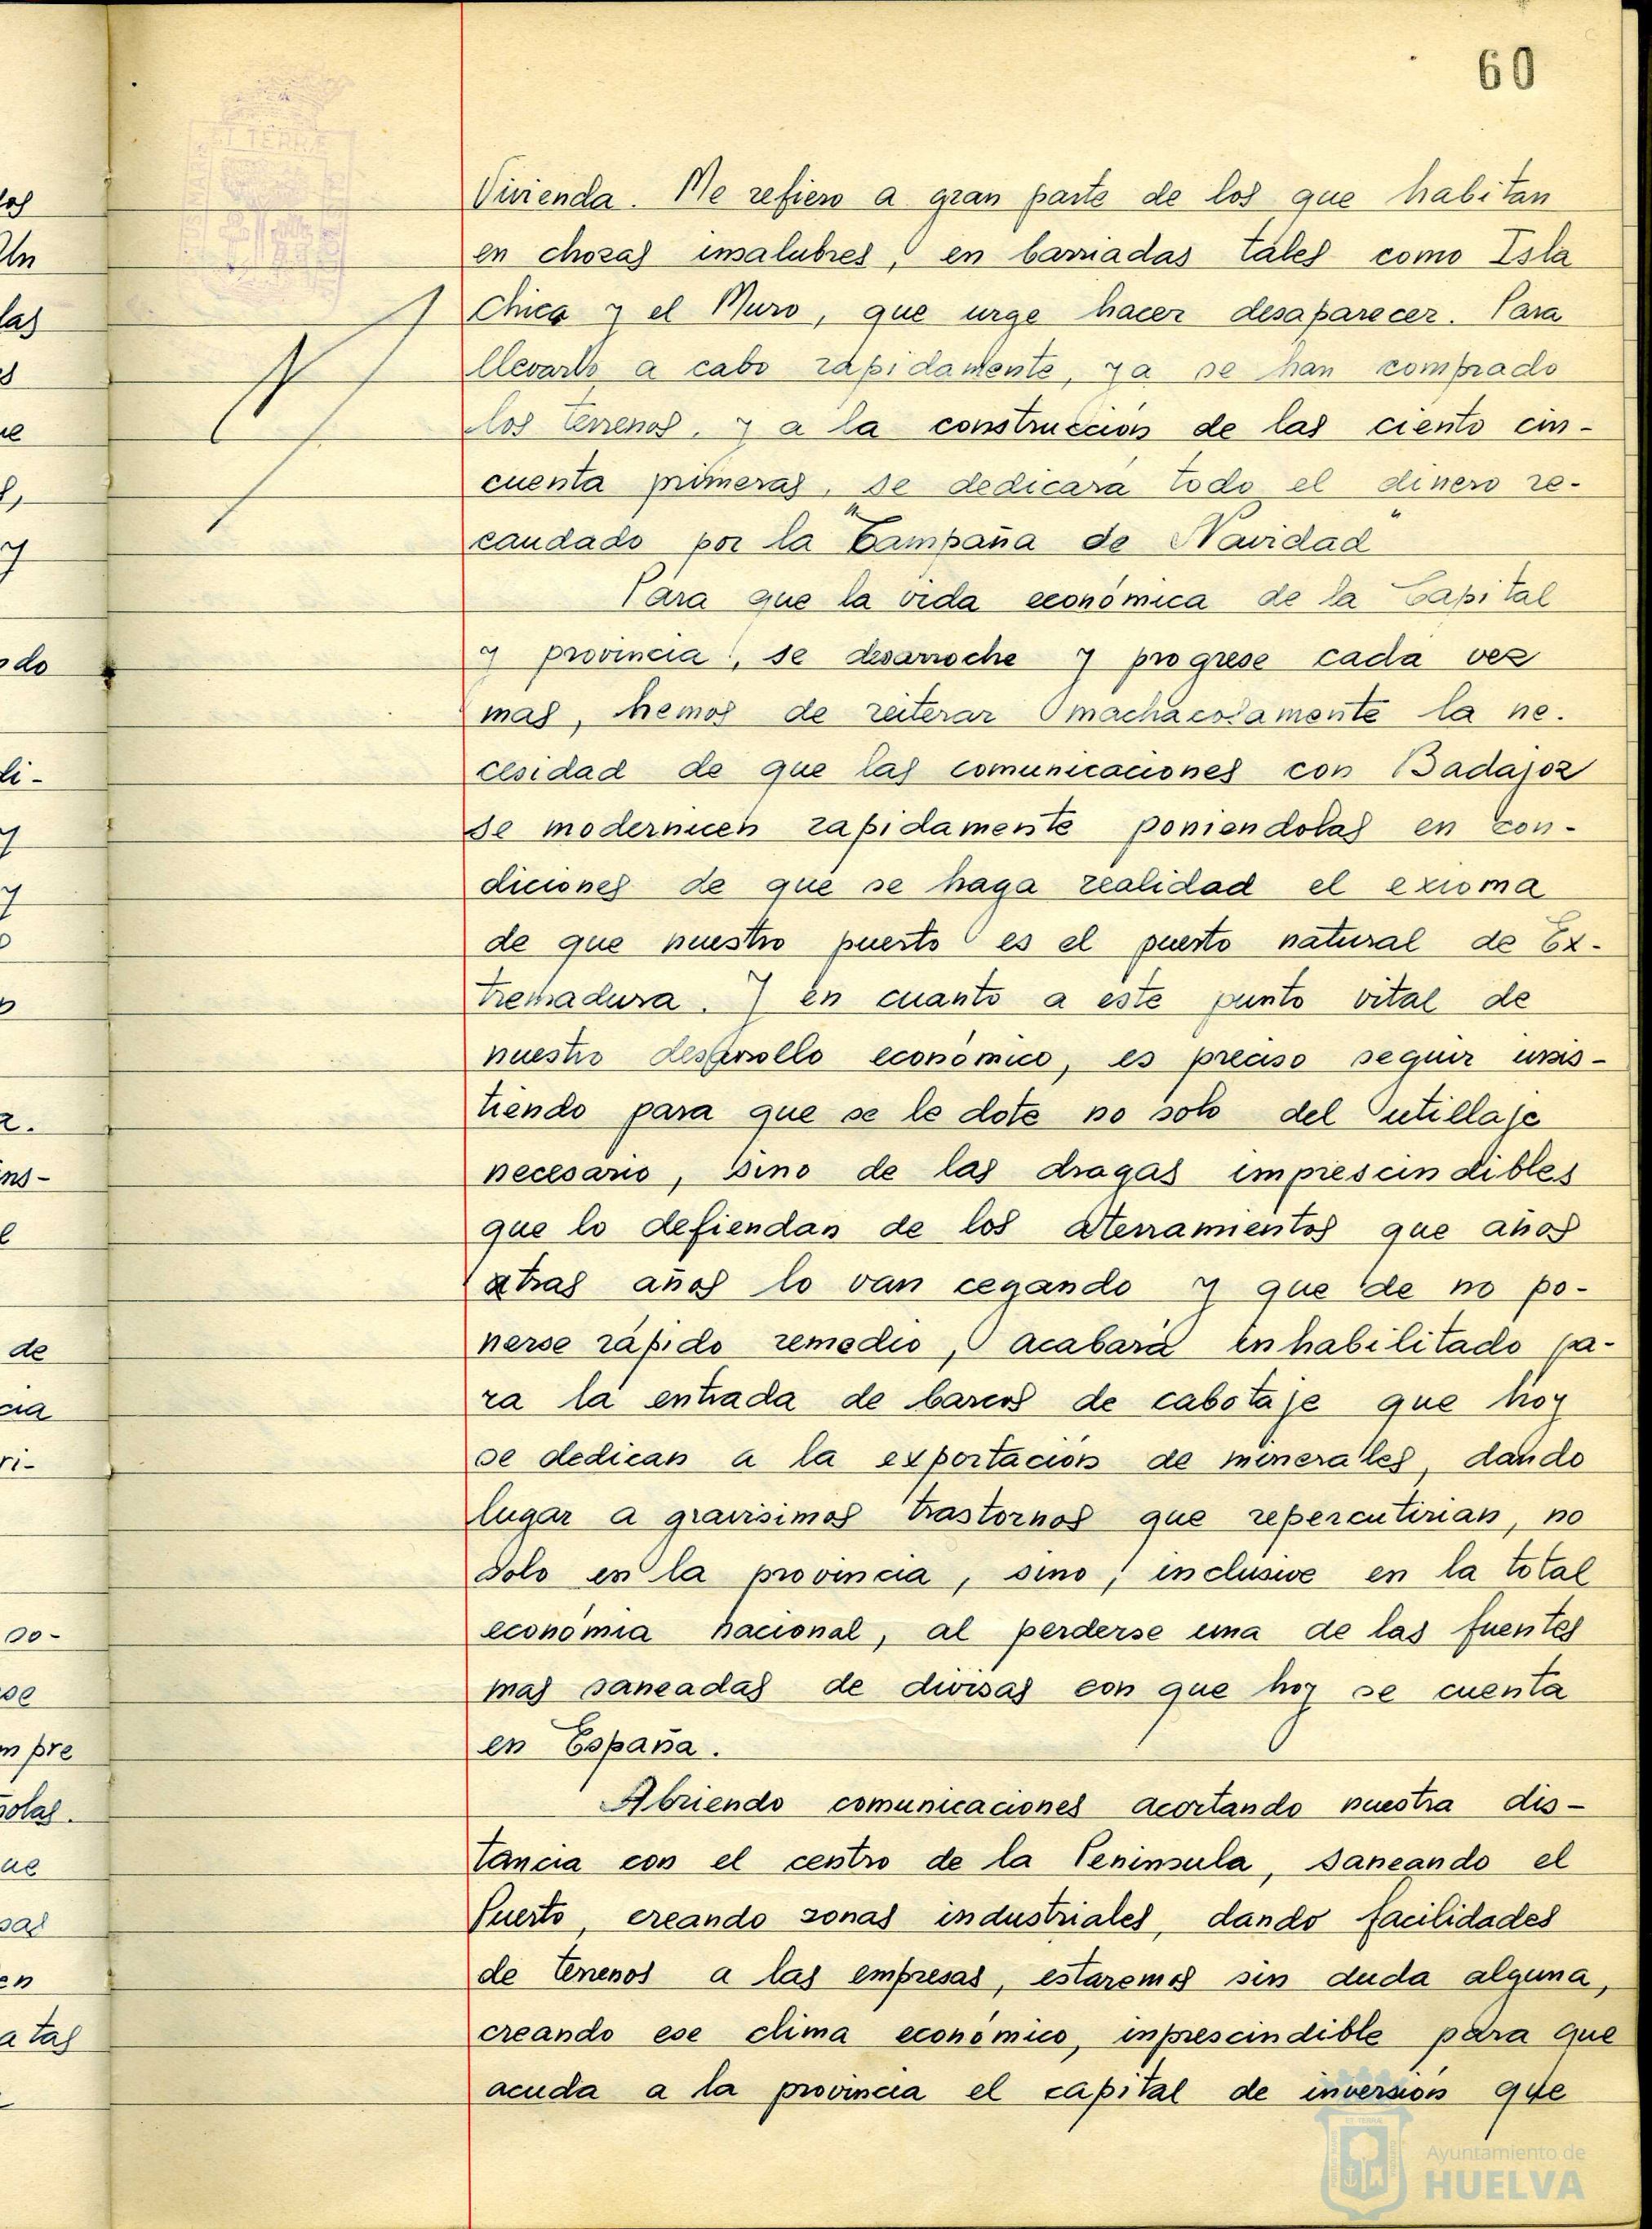 60
Vivienda. Me refiero a gran parte de los que habitan
en chozas insalubres, en barriadas tales como Isla
Chica y el Muro, que urge hacer desaparecer. Para
llevarlo a cabo rapidamente, ya se han comprado
los terrenos, y a la construccion de las ciento cin-
cuenta primeras, se dedicará todo el dinero re-
caudado por la "Campaña de Navidad"
Para que la vida económica de la Capital
y provincia, se desarroche y progrese cada vez
mas, hemos de reiterar machaconamente la ne-
cesidad de que las comunicaciones con Badajoz
se modernicen rapidamente poniendolas en con-
diciones de que se haga realidad el exioma
de que nuestro puerto es el puerto natural de Ex-
tremadura. Y en cuanto a este punto vital de
nuestro desarrollo económico, es preciso seguir insis-
tiendo para que se le dote no solo del utillaje
necesario, sino de las dragas imprescindibles
que lo defiendan de los aterramientos que años
atras años lo van cegando y que de no po-
nerse rápido remedio, acabará inhabilitado pa-
ra la entrada de barcos de cabotaje que hoy
se dedican a la exportación de minerales, dando
lugar a gravisimos trastornos que repercutirian, no
solo en la provincia, sino, inclusive en la total
económia nacional, al perderse una de las fuentes
mas saneadas de divisas con que hoy se cuenta
en España.
Abriendo comunicaciones acortando nuestra dis-
tancia con el centro de la Peninsula, saneando el
Puerto, creando zonas industriales, dando facilidades
de terrenos a las empresas, estaremos sin duda alguna,
creando ese clima económico, inprescindible para que
acuda a la provincia el capital de inversión que
Ayuntamiento de
HUELVA